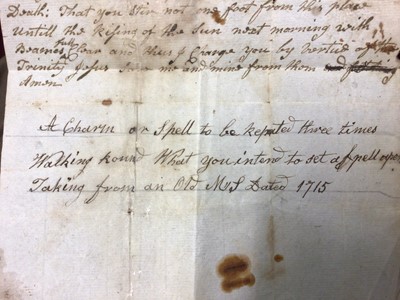 Death: That you Stir not one foot from this place
Untill the Rising of the Sun next morning with
Beames full Clear and thus I Charge you by Vertue of the
Trinity Jesus Save me and mine from them
Amen
A Charm or Spell to be Repated three times
Walking Round What you intend to set a Spell upon
Taking from an Old MS Dated 1715